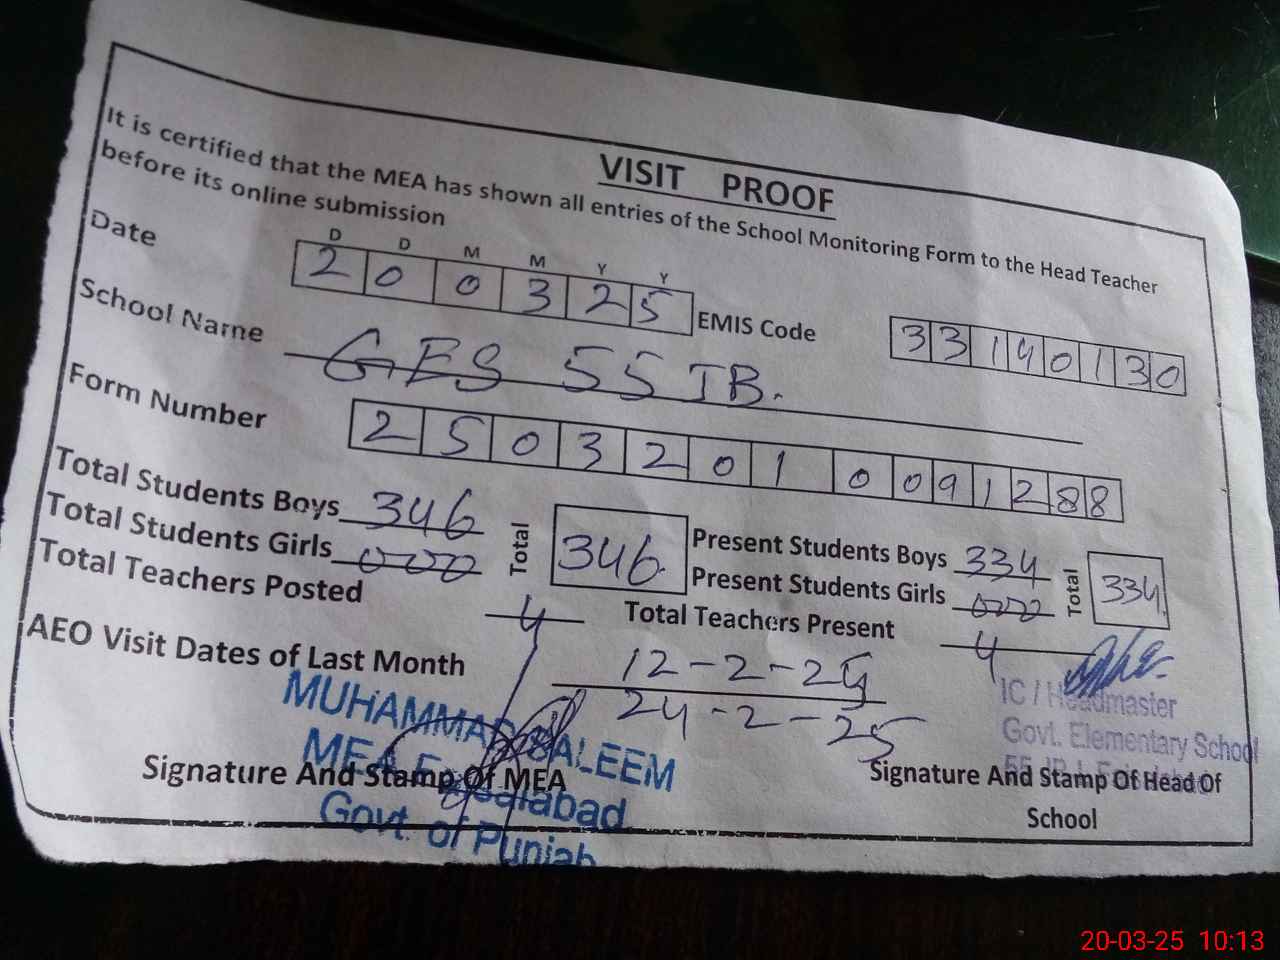 VISIT PROOF
It is certified that the MEA has shown all entries of the School Monitoring Form to the Head Teacher
before its online submission
D D M M Y Y
Date 2 0 0 3 2 5 EMIS Code 3 3 1 4 0 1 3 0
School Name GES 55 JB.
Form Number 2 5 0 3 2 0 1 0 0 9 1 2 8 8
Total Students Boys 346 Total 346 Present Students Boys 334 Total 334
Total Students Girls 000 Present Students Girls 000
Total Teachers Posted 4 Total Teachers Present 4
AEO Visit Dates of Last Month 12-2-25
24-2-25
MUHAMMAD SALEEM
MEA Faisalabad
Govt. of Punjab
IC / Headmaster
Govt. Elementary School
55 JB
Signature And Stamp Of MEA
Signature And Stamp Of Head Of
School
20-03-25 10:13